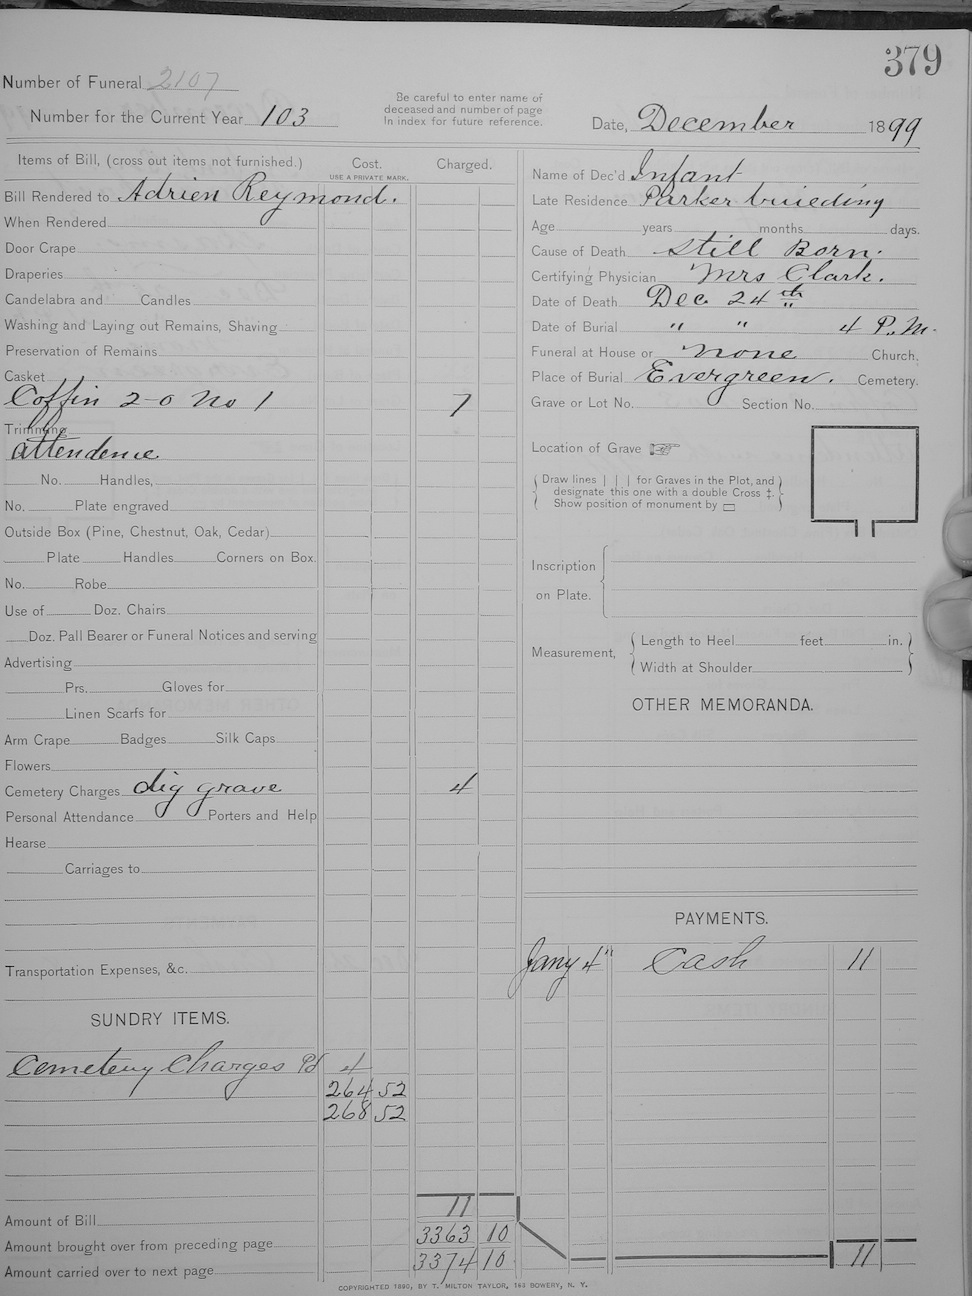 379
Number of Funeral 2107
Number for the Current Year 103
Be careful to enter name of
deceased and number of page
In index for future reference.
Date, December 1899
Items of Bill, (cross out items not furnished.) Cost. Charged.
USE A PRIVATE MARK.
Bill Rendered to Adrien Reymond.
When Rendered
Door Crape
Draperies
Candelabra and Candles
Washing and Laying out Remains, Shaving
Preservation of Remains
Casket
Coffin 2-0 No 1 7
Trimming
attendence
No. Handles,
No. Plate engraved
Outside Box (Pine, Chestnut, Oak, Cedar)
Plate Handles Corners on Box.
No. Robe
Use of Doz. Chairs
Doz. Pall Bearer or Funeral Notices and serving
Advertising
Prs. Gloves for
Linen Scarfs for
Arm Crape Badges Silk Caps
Flowers
Cemetery Charges dig grave 4
Personal Attendance Porters and Help
Hearse
Carriages to
Transportation Expenses, &c.
SUNDRY ITEMS.
Cemeteny Charges Pd 4
264 52
268 52
Amount of Bill 11
Amount brought over from preceding page 3363 10
Amount carried over to next page 3374 10
Name of Dec'd Infant
Late Residence Parker buieding
Age years months days.
Cause of Death Still Born.
Certifying Physician Mrs Clark.
Date of Death Dec. 24th
Date of Burial " " 4 P.M.
Funeral at House or None Church.
Place of Burial Evergreen. Cemetery.
Grave or Lot No. Section No.
Location of Grave
Draw lines | | | for Graves in the Plot, and
designate this one with a double Cross ‡.
Show position of monument by ▭
Inscription
on Plate.
Measurement, Length to Heel feet in.
Width at Shoulder
OTHER MEMORANDA.
PAYMENTS.
Jany 4" Cash 11
11
COPYRIGHTED 1890, BY T. MILTON TAYLOR, 163 BOWERY, N. Y.